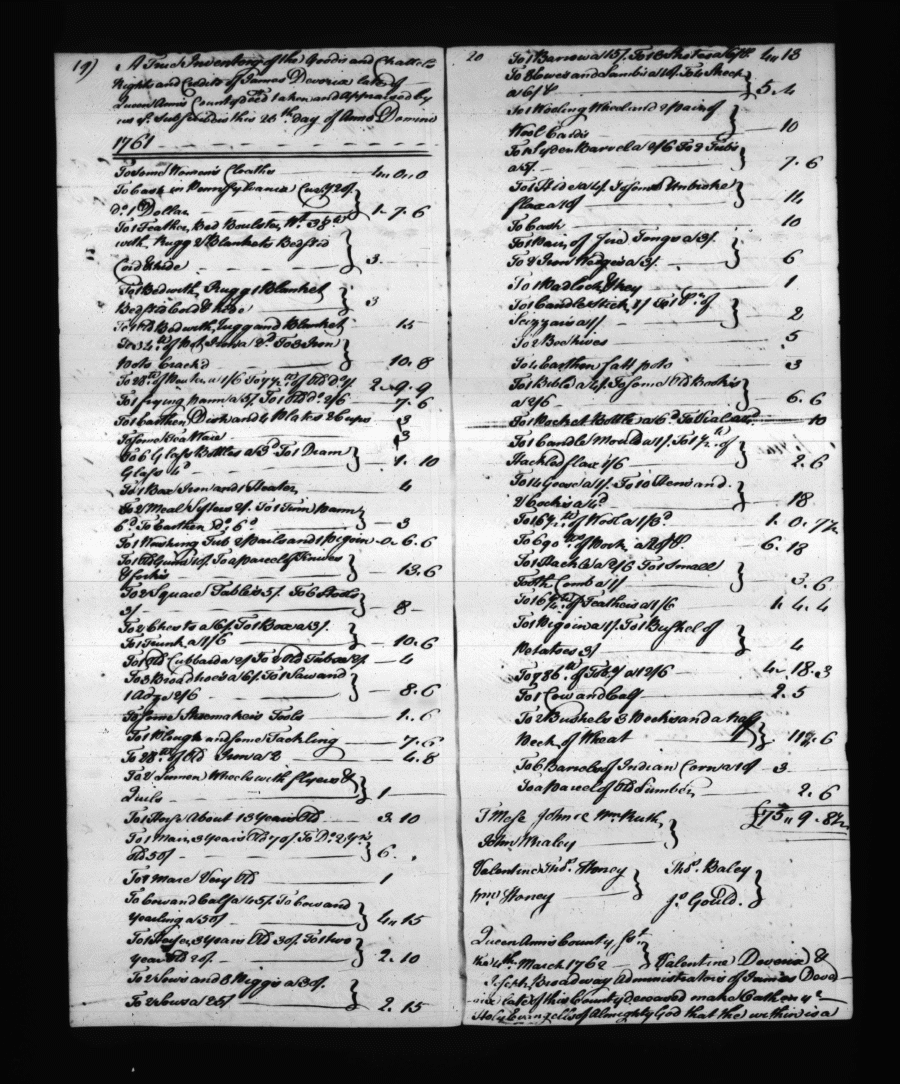 19)
A True Inventory of the Goods and Chattels
Rights and Credits of James Deverix late of
Queen Ann's County dec'd taken and appraised by
us ye Subscribers this 26th day of Anno Domini
1761
To some Women's Cloaths 4,, 0,, 0
To Cash in Pennsylvania Curcy 20/
Do. 1 Dollar 1 - 7. 6
To 1 Feather Bed Boulster, Wt. 38
with Rugg 2 Blankets Bedstid
Cord & hide 3
To 1 Bed with Rugg 1 Blanket
Bedstid Cord & hide 3
To 1 old Bed with Rugg and Blanket 15
To 34 lb of Pot Iron a 2d To 3 Iron
Pots Crack'd 10. 8
To 28 lb of Pewter a 1/6 To 7½ lb of Old Do 2 - 9. 9
To 1 frying pann a 5/ To 1 Old Do 2/6 7. 6
To 1 Earthen Dish and 4 Plates 2 Cups 3
To some Tea Ware 3
To 6 Glass Bottles a 3d To 1 Dram
Glass 4d 1. 10
To 1 Box Iron and 1 Heater 4
To 2 Meal Sifters 2/ To 1 Tinn Pann
6d To Earthen Do 6d 3
To 1 Washing Tub 2 Pails and 1 Pigoin 0. 6. 6
To 1 Old Gunn 10/ To a Parcel of Knives
& forks 13. 6
To 2 Square Tables 5/ To 6 Stools
3/ 8
To 2 Chests a 6/ To 1 Box a 3/
To 1 Trunk a 1/6 10. 6
To 1 Old Cubbard a 2/ To 2 Old Tubs a 2/ 4
To 3 Broad hoes a 6/ To 1 Saw and
1 Adze 2/6 8. 6
To some Shoemakers Tools 1. 6
To 1 Plough and some Tackling 7. 6
To 28 lb of Old Iron a 2 4. 8
To 2 Linnen Wheels with flyers &
Quils 1
To 1 Horse About 13 Years Old 3. 10
To 1 Mair, 3 Years Old 70/ To Do 2 Yrs
old 50/ 6
To 1 Mare Very Old 1
To Cow and Calf a 45/ To Cow and
Yearling a 50/ 4,, 15
To 1 Heifer, 3 Years Old 30/ To 1 two
year Old 20/ 2. 10
To 2 Sows and 8 Piggs a 30/
To 2 Sows a 25/ 2. 15
20
To 1 Barrow a 15/ To 13 Shotes a 6/ 4,, 13
To 8 Ewes and Lambs a 10/ To 4 Sheep
a 6/ 5. 4
To 1 Wooling Wheel and 2 pair of
Wool Cards 10
To 1 Syder Barrel a 2/6 To 2 Tubs
a 5/ 7. 6
To 1 Hide a 4/ To some Unbroke
flax a 10/ 14
To Cash 10
To 1 Pair of Fire Tongs a 3/
To 2 Iron Wedges a 3/ 6
To 1 Padlock & key 1
To 1 Candlestick 1/ To 1 Pr. of
Scizzars a 1/ 2
To 2 Beehives 5
To 4 Earthen fatt pots 3
To 1 Bible a 4/ To some Old Books
a 2/6 6. 6
To 1 Pocket Bottle a 6d To Vial 10
To 1 Candle Mould a 1/ To 1½ lb of
Hackled flax 1/6 2. 6
To 4 Geese a 1/ To 10 Hens and
2 Cocks a 18
To 16½ lb of Wool a 1. 0. 7½
To 690 lb of Pork a 20/ 6. 18
To 1 Hackle a 2/6 To 1 small
Tooth Comb a 1/ 3. 6
To 16¼ lb of Feathers a 1/6 1. 4. 4
To 1 Pigoin a 1/ To 1 Bushel of
Potatoes 3/ 4
To 786 lb of Tob. a 12/6 4,, 18. 3
To 1 Cow and Calf 2. 5
To 2 Bushels 3 Pecks and a half
Peck of Wheat 11. 6
To 6 Barrels of Indian Corn a 10/ 3
To a Parcel of Old Lumber 2. 6
£75,, 9. 8½
Wm. Ruth
John Whaley
Valentine Thos. Honey Thos. Baley
Wm. Honey Js. Gould.
Queen Ann's County, Sct.
the 4th March 1762 Valentine Deverix &
Joseph Broadway Administrators of James Deve-
rix late of this County deceased made Oath on ye
Holy Evangells of Almighty God that the within is a